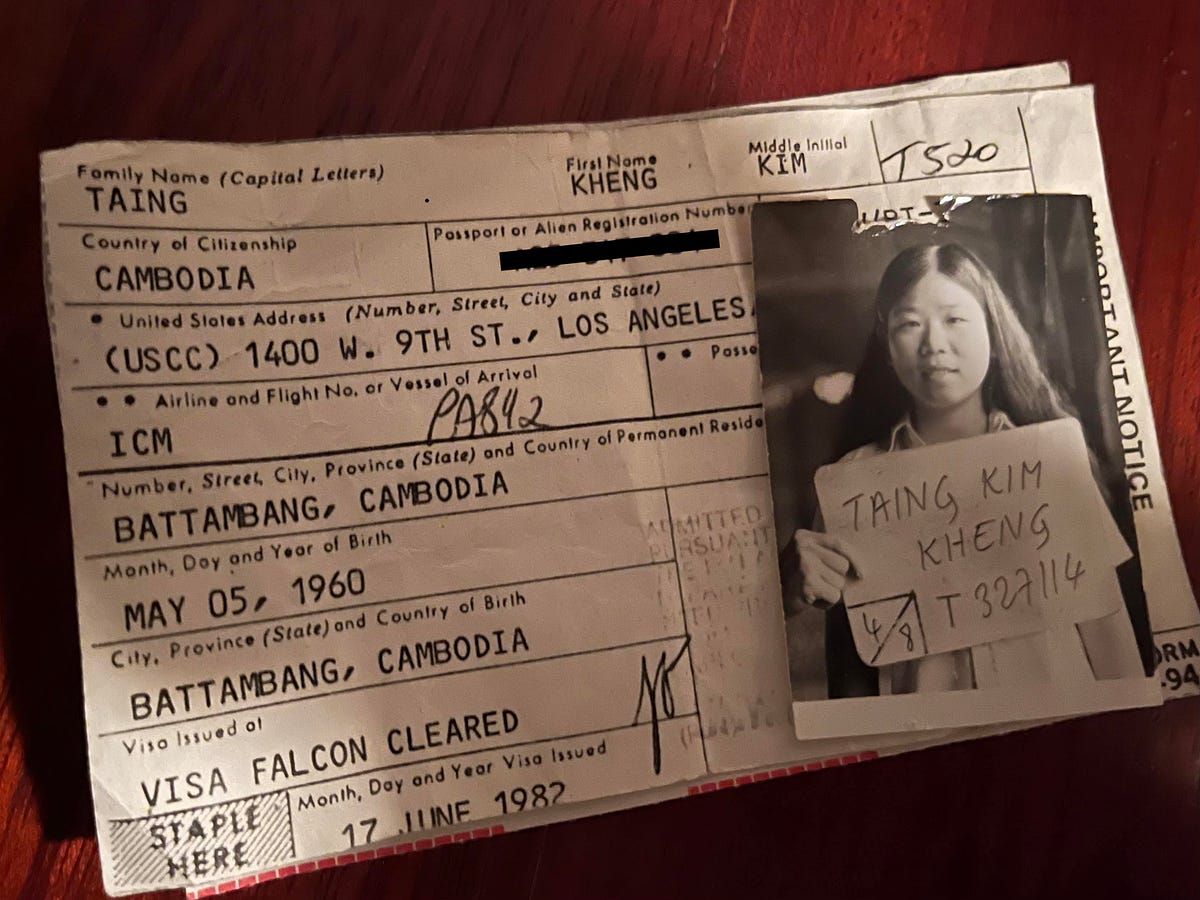 Family Name (Capital Letters) First Name Middle Initial
TAING KHENG KIM T520
Country of Citizenship Passport or Alien Registration Number
CAMBODIA
• United States Address (Number, Street, City and State)
(USCC) 1400 W. 9TH ST., LOS ANGELES
• • Airline and Flight No. or Vessel of Arrival • • Passe
ICM PA842
Number, Street, City, Province (State) and Country of Permanent Reside
BATTAMBANG, CAMBODIA
Month, Day and Year of Birth
MAY 05, 1960
City, Province (State) and Country of Birth
BATTAMBANG, CAMBODIA
Visa Issued at
VISA FALCON CLEARED
Month, Day and Year Visa Issued
17 JUNE 1982
STAPLE
HERE
ADMITTED
PURSUANT
TAING KIM
KHENG
4/8 T 327114
IMPORTANT NOTICE
ORM
-94